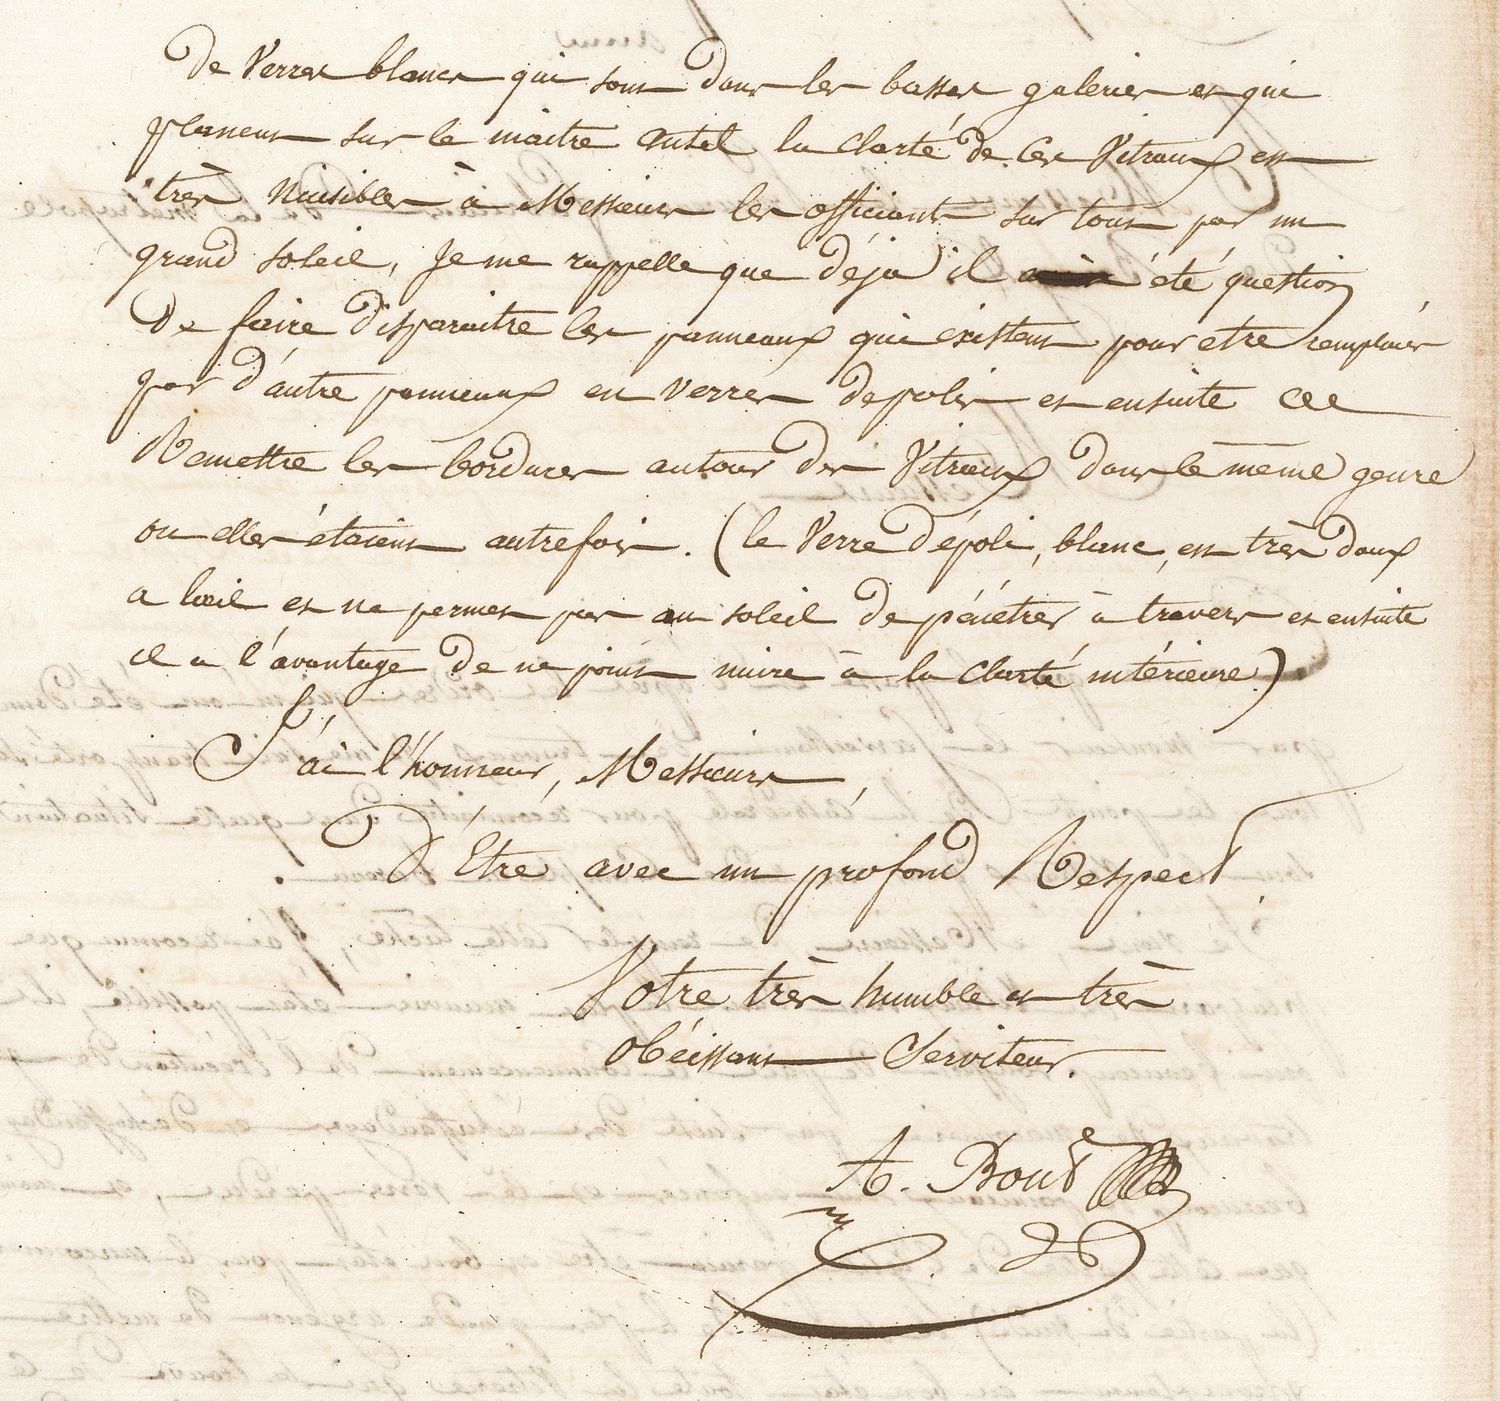 De Verres blancs qui sont dans les basses galeries et qui
planent sur le maitre autel la clarté de ces Vitraux est
très nuisibles à Messieurs les officiants sur tout par un
grand soleil, je me rappelle que déja il été question
De faire disparaitre les panneaux qui existent pour etre remplacés
par d'autre panneaux en verres depolis et ensuite
Remettre les bordures autour des Vitraux dans le même genre
ou elles étaient autrefois. (le Verre dépoli, blanc, est très doux
a l'oeil et ne permet pas au soleil de pénétrer à travers et ensuite
il a l'avantage de ne point nuire à la clarté intérieure)
J'ai l'honneur, Messieurs,
D'Etre avec un profond Respect
Votre très humble et très
obéissant Serviteur.
A.